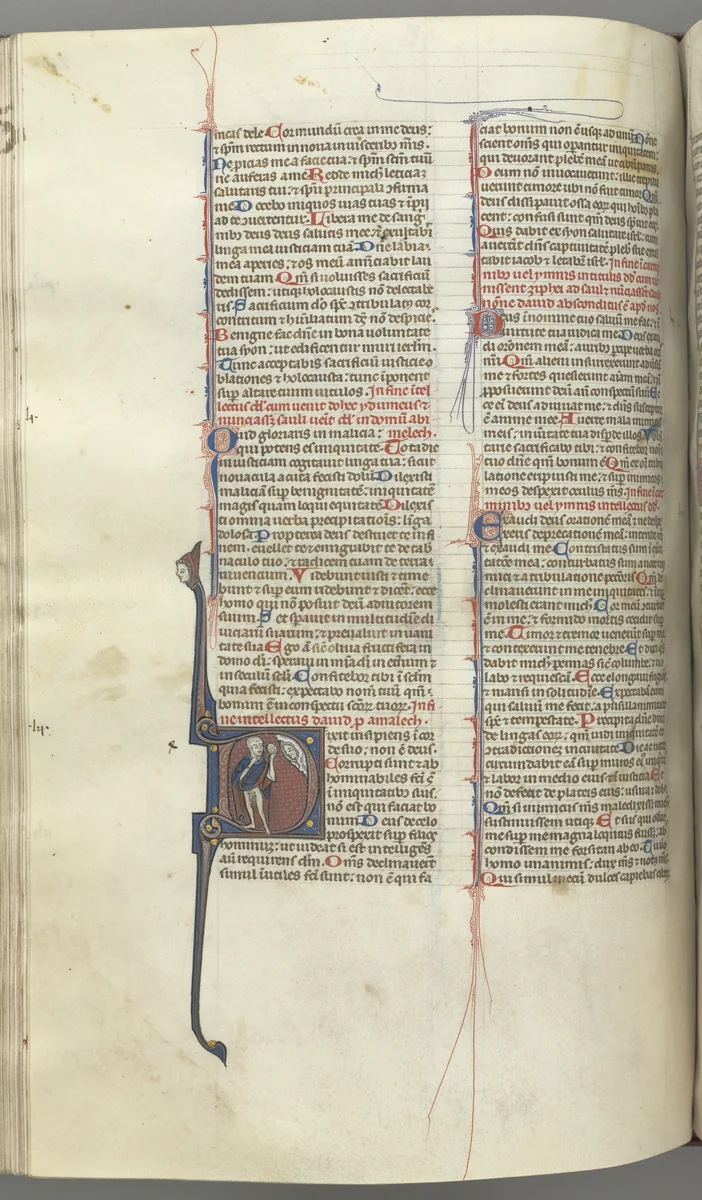 meas dele Cor mundū crea in me deus:
& sp̄m rectum in noua in uisceribꝫ m̄is.
Ne ꝓicias me a facie tua: & sp̄m sc̄m tuū
ne auferas a me Redde michi leticiaꝫ
salutaris tui: & sp̄u principali ꝯfirma
me Docebo iniquos uias tuas & īpii
ad te ꝯuertentur. Libera me de sanḡ
nibꝫ deus deus salutis mee: & exultabit
lingua mea iusticiam tuā Dn̄e labia
mea aperies: & os meū ann̄ciabit lau
dem tuam Qm̄ si uoluisses sacrificiū
dedissem: utiqꝫ holocaustis nō delectabe
ris. Sacrificium dō sp̄c ꝯtribulat9 cor
contritum & hūiliatum dē nō despicies.
Benigne fac dn̄e in bona uoluntate
tua syon: ut edificentur muri ierl'm.
Tunc acceptabis sacrificiū iusticie o
blationes & holocausta: tunc īponent
sup altare tuum uitulos. In fine ītel
lectus dd' cum uenit dohec ydumeus &
nunciasꝫ sauli ueīt dd' in domū abi
Quid gloriaris in malicia: melech.
qui potens es iniquitate Tota die
iniusticiam cogitauit lingua tua: sicut
nouacula acuta fecisti dolū Dilexisti
maliciam sup benignitatē: iniquitatē
magis quam loqui equitatē Dilexis
ti omnia uerba precipitatiois: līgua
dolosa Propterea deus destruet te in fi
nem. euellet te & emigrabit te de tab
naculo tuo: & radicem tuam de terra
uiuencium. Videbunt iusti & time
bunt & sup eum ridebunt & dicēt: ecce
homo qui nō posuit deū adiutorem
suum. Set sꝑauit in multitudie di
uiciarū suarum: & preualuit in uani
tate sua Ego aū sic oliua fructifera in
domo dī: speraui in mīa dī in et̄num &
in sec̄lum sec̄li Confitebor tibi ī sec̄lm
quia fecisti: & expectabo nom̄ tuū qm̄
bonum ē in conspectu sc̄oꝝ tuoꝝ. In fi
ne intellectus dauid ꝑ amalech.
Dixit insipiens ī cor
de suo: non ē deus.
Corrupti sunt & ab
hominabiles fc̄i s̄
in iniquitatibꝫ suis.
nō est qui faciat bo
num Deus de celo
prospexit sup filios
hominū: ut uideat si est intelligēs
aū requirens dm̄. Om̄s declinauerūt
simul īutiles fc̄i sunt: non ē qui fa
ciat bonum non ē usqꝫ ad unū Nōne
scient om̄s qui oꝑantur iniquitatem:
qui deuorant plebē meā ut cibū panis.
Deum non inuocauerunt: illic trepida
uerunt timore ubi nō fuit timor Qm̄
deus dissipauit ossa eoꝝ qui hoībꝫ pla
cent: confusi sunt qm̄ deus sp̄uit eos
Quis dabit ex syon salutare isrl': cum
auertit dn̄s captiuitatē plebis sue exul
tabit iacob & letabit' isrl'. In fine ī carmi
nibꝫ uel ymnis intellectus dd' cum ue
nissent zyphei ad saul & nūciassent sauli
nōne dauid absconditus ē apd' nos
Deus ī nomine tuo saluū me fac: & ī
uirtute tua iudica me Deus exau
di or̄onem meā: auribꝫ ꝑcipe uerba oris
mei. Qm̄ alieni insurrexerunt adūsū
me & fortes quesierunt aīam meā: & nō
ꝓposuerunt deū an̄ conspectū suū Ec
ce eī deus adiuuat me: & dn̄s susceptor
ē anime mee Auerte mala inimicis
meis: in ūitate tua disꝑde illos. Volun
tarie sacrificabo tibi: & confitebor noī
tuo dn̄e qm̄ bonum ē Qm̄ ex oī tribu
latione eripuisti me: & sup inimicos
meos despexit oculus m̄s. In fine ī car
minibꝫ uel ymnis intellectus dd'
Exaudi deus orationē meā & ne despe
xeris deprecationē meā: intende m̄
& exaudi me Contristatus sum ī exerci
tatōe mea: conturbatus sum a uoce ini
mici & a tribulatione peccatoris Qm̄ de
clinauerunt in me iniquitates: & ī ira
molesti erant michi Cor meū ꝯturbatū
ē in me: & formido mortis cecidit sup
me. Timor & tremor uenerūt sup me
& contexerunt me tenebre Et dixi: quis
dabit michi pennas sic columbe: & uo
labo & requiescā. Ecce elongaui fugiēs
& mansi in solitudīe. Expectabā eum
qui saluū me fecit: a pusillanimitate
sp̄c & tempestate. Precipita dn̄e diuide
linguas eoꝝ: qm̄ uidi iniquitatē &
ꝯtradictionē in ciuitate Die ac nocte
circundabit eā sup muros ei9 iniqtas
& labor in medio eius & iniusticia Et
nō defecit de plateis eius: usura & dolus
Qm̄ si inimicus m̄s maledixisset michi
sustinuissem utiqꝫ Et si is qui oderat
me sup me magna locutus fuiss&: ab
condissem me forsitan ab eo. Tu uō
homo unanimis: dux m̄s & notus m̄s.
Qui simul mecū dulces capiebas cibos